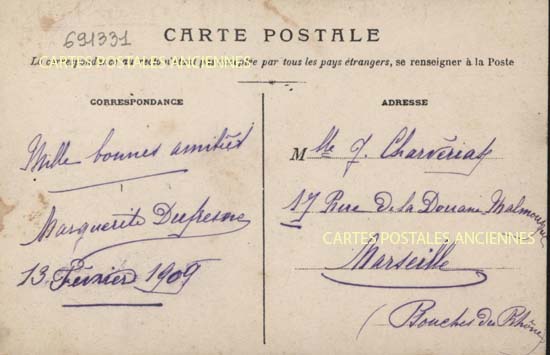 691331
CARTE POSTALE
La correspondance au recto n'est pas acceptée par tous les pays étrangers, se renseigner à la Poste
CARTES POSTALES ANCIENNES
CORRESPONDANCE
Mille bonnes amitiés
Marguerite Dufresne
13 Février 1909
ADRESSE
Mlle J. Charvériat
17 Rue de la Douane Malmousque
CARTES POSTALES ANCIENNES
Marseille
(Bouches du Rhône)